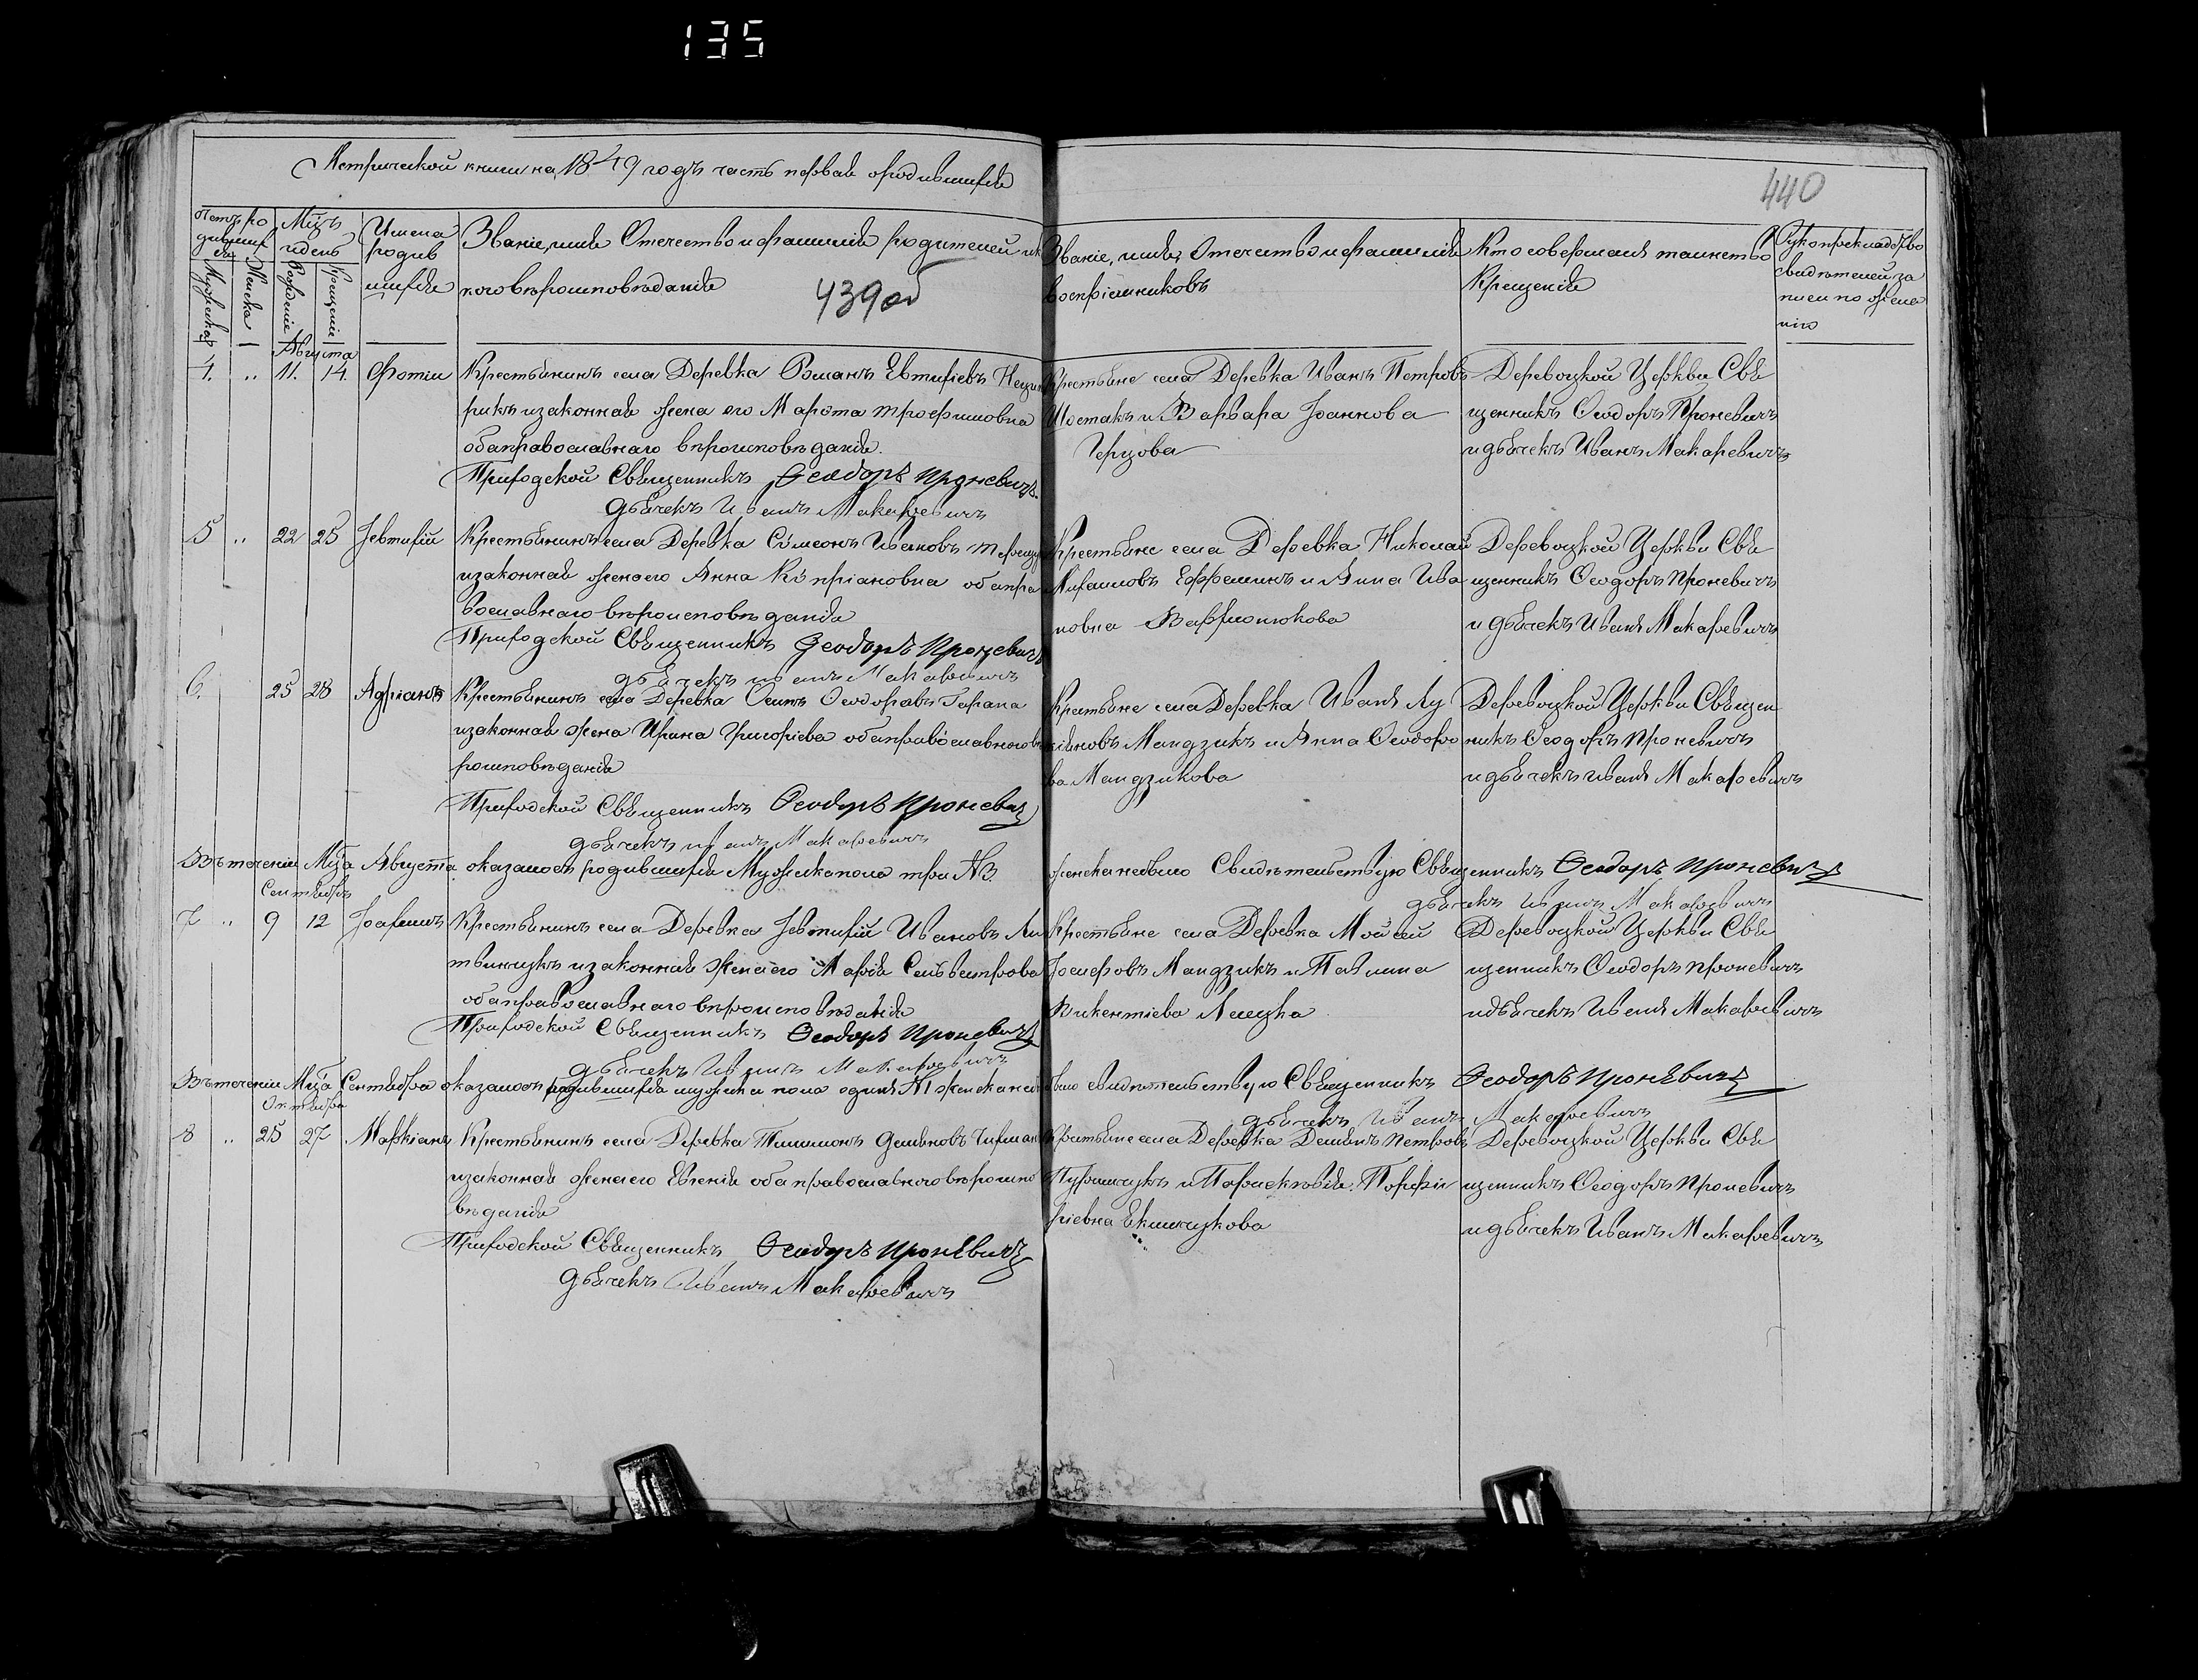 135
Метрической книги на 1849 годъ часть первая о родившихся
440
Счетъ ро
дивших
ся
Мужеска
Женска
Мѣцъ
и день
Рожденія
Крещенія
Имена
родив
шихся
Званіе, имя Отечество и фамилія родителей и ка
кого вѣроисповѣданія
439об
Званіе, имя, Отечество и фамилія
воспріемниковъ
Кто совершалъ таинство
Крещенія
Рукоприкладство
свидѣтелей за
писи по жела
нію
Августа
4. „ 11. 14. Фотій
Крестьянинъ села Деревка Романъ Евтихіевъ
рикъ и законная жена его Марѳа Трофимовна
оба православнаго вѣроисповѣданія.
Приходской Священникъ Ѳеодоръ Проневичъ
дьячекъ Иванъ Макаревичъ
Крестьяне села Деревка Иванъ Петровъ
Шостакъ и Варвара Іоаннова
Черцова
Деревоцкой Церкви Свя
щенникъ Ѳеодоръ Проневичъ
и дьячекъ Иванъ Макаревичъ
5 „ 22 25 Іевтихій
Крестьянинъ села Деревка Сѵмеонъ Ивановъ
и законная жена его Анна Кѵпріановна оба пра
вославнаго вѣроисповѣданія
Приходской Священникъ Ѳеодоръ Проневичъ
дьячекъ Иванъ Макаревичъ
Крестьяне села Деревка Николай
Михаиловъ Ефремикъ и Анна Ива
новна
Деревоцкой Церкви Свя
щенникъ Ѳеодоръ Проневичъ
и дьячекъ Иванъ Макаревичъ
6. 25 28 Адріанъ
Крестьянинъ села Деревка Осипъ Ѳеодоровъ
и законная жена Ирина Григоріева оба православнаго вѣ
роисповѣданія
Приходской Священникъ Ѳеодоръ Проневичъ
дьячекъ Иванъ Макаревичъ
Крестьяне села Деревка Иванъ Лу
кіяновъ Мандзикъ и Анна Ѳеодоро
ва Мандзикова
Деревоцкой Церкви Священ
никъ Ѳеодоръ Проневичъ
и дьячекъ Иванъ Макаревичъ
Въ теченіи Мѣца Августа оказалось родившихся Мужска пола три №3. женска небыло Свидѣтельствую Священникъ Ѳеодоръ Проневичъ
дьячекъ Иванъ Макаревичъ
Сентябрь
7 „ 9 12 Іоакимъ
Крестьянинъ села Деревка Іевтихій Ивановъ Ли
твинчукъ и законная жена его Марія Сильвестрова
оба православнаго вѣроисповѣданія
Приходской Священникъ Ѳеодоръ Проневичъ
дьячекъ Иванъ Макаревичъ
Крестьяне села Деревка Моисей
Іосифовъ Мандзикъ и Павлина
Викентіева
Деревоцкой Церкви Свя
щенникъ Ѳеодоръ Проневичъ
и дьячекъ Иванъ Макаревичъ
Въ теченіи Мѣца Сентября оказалось родившихся мужска пола одинъ №1 женска небыло свидѣтельствую Священникъ Ѳеодоръ Проневичъ
дьячекъ Иванъ Макаревичъ
Октября
8 „ 25 27 Маркіанъ
Крестьянинъ села Деревка Тимамонъ Демяновъ
и законная жена его Евгенія оба православнаго вѣроиспо
вѣданія
Приходской Священникъ Ѳеодоръ Проневичъ
дьячекъ Иванъ Макаревичъ
Крестьяне села Деревка Демянъ Петровъ
и Параскевія Порфи
ріевна
Деревоцкой Церкви Свя
щенникъ Ѳеодоръ Проневичъ
и дьячекъ Иванъ Макаревичъ